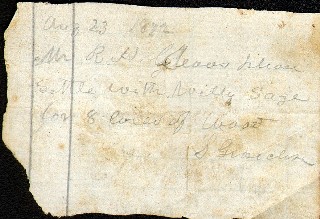 Aug 23 1872
Mr R H Please
settle with Willy Sage
for 8 Cords of Wood
S